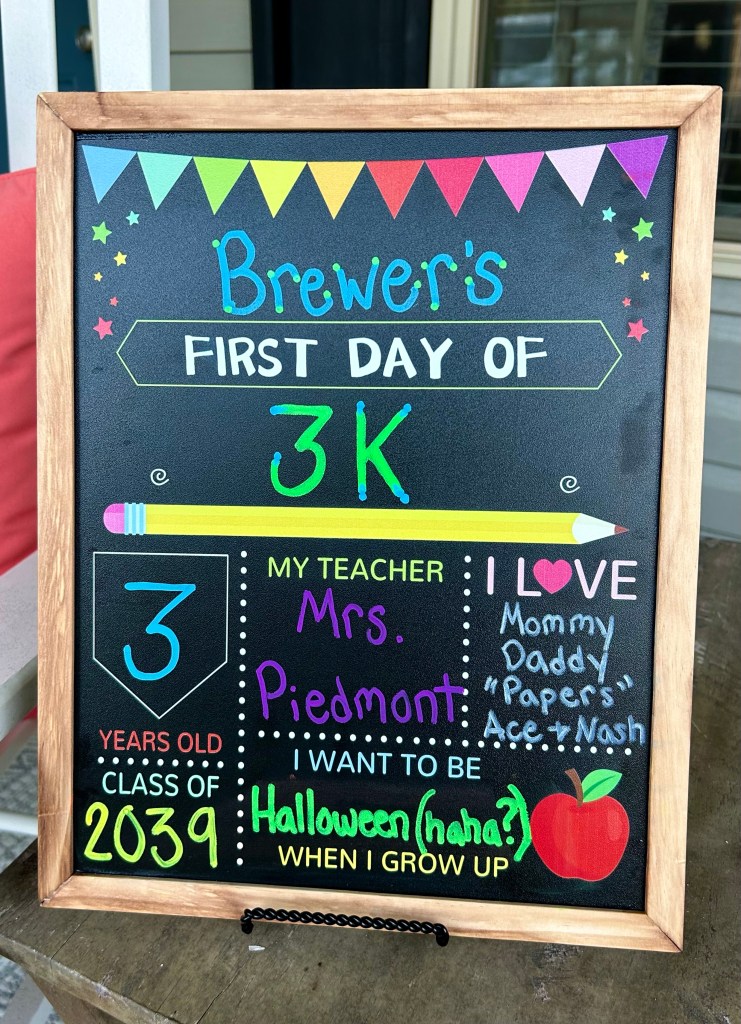 Brewer's
FIRST DAY OF
3K
3
YEARS OLD
CLASS OF
2039
MY TEACHER
Mrs.
Piedmont
I LOVE
Mommy
Daddy
"Papers"
Ace + Nash
I WANT TO BE
Halloween (haha?)
WHEN I GROW UP